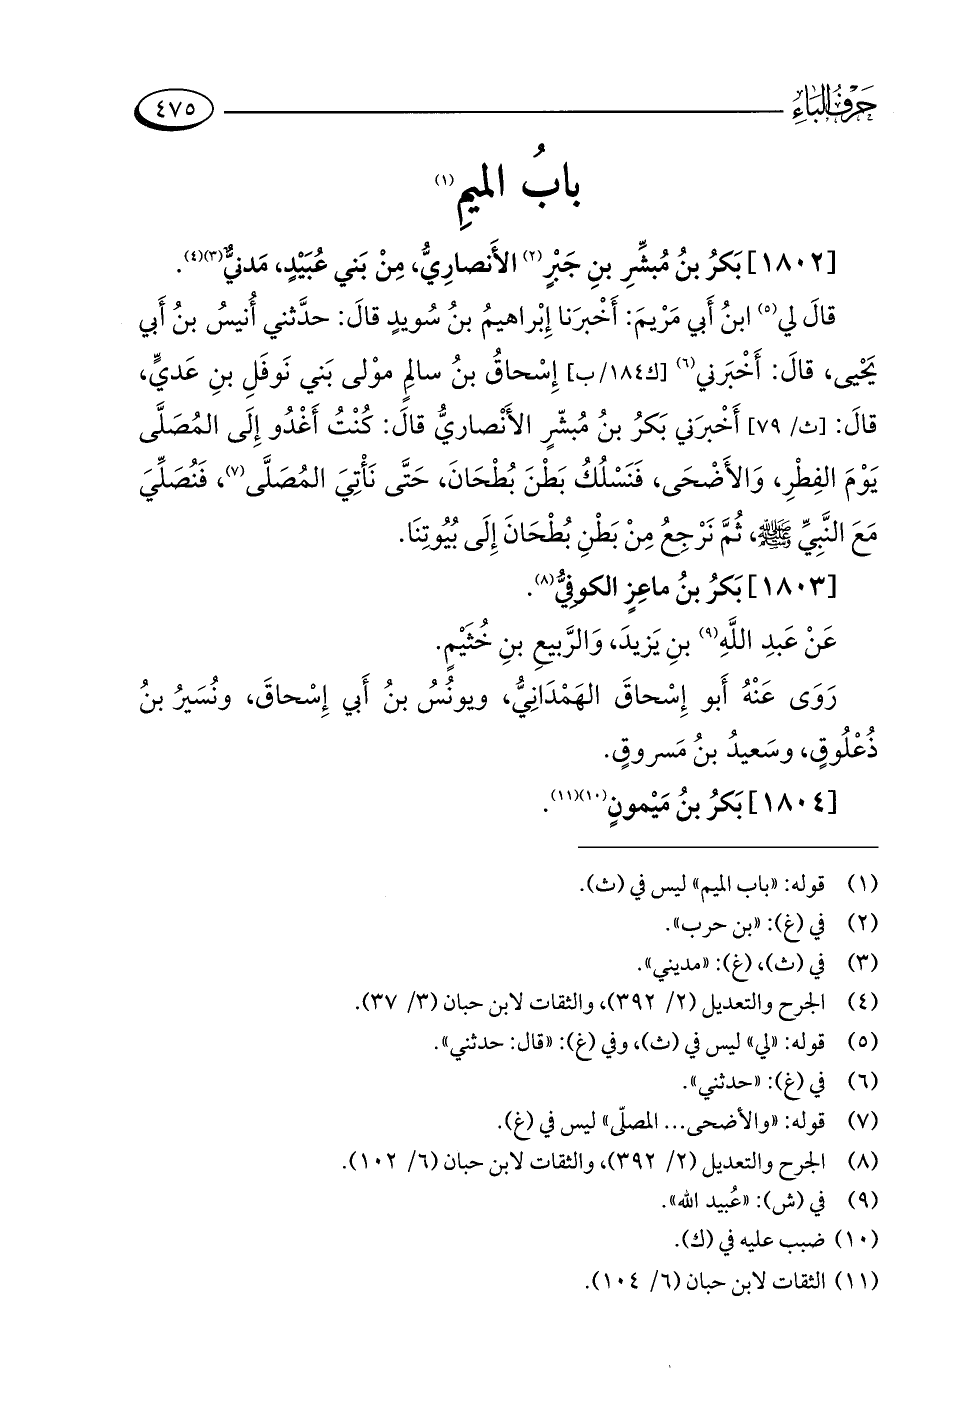 حَرْفُ البَاءِ
٤٧٥
بابُ الميمِ(١)
[١٨٠٢] بَكرُ بنُ مُبشِّرِ بنِ جَبْرٍ(٢) الأَنصاريُّ، مِنْ بَني عُبَيْدٍ، مَدنيٌّ(٣)(٤).
قالَ لي(٥) ابنُ أَبي مَرْيمَ: أَخْبرَنا إبْراهيمُ بنُ سُويدٍ قالَ: حدَّثني أُنيسُ بنُ أَبي
يَحْيى، قالَ: أَخْبَرني(٦) [ك١٨٤/ب] إسْحاقُ بنُ سالمٍ موْلى بَني نَوفَلِ بنِ عَديٍّ،
قالَ: [ث/ ٧٩] أَخْبرَني بَكرُ بنُ مُبشّرٍ الأنْصاريُّ قالَ: كُنْتُ أَغْدُو إِلَى المُصَلَّى
يَوْمَ الفِطْرِ، وَالأَضْحَى، فَنَسْلُكُ بَطْنَ بُطْحَانَ، حَتَّى نَأْتِيَ المُصَلَّى(٧)، فَنُصَلِّيَ
مَعَ النَّبِيِّ ﷺ، ثُمَّ نَرْجِعُ مِنْ بَطْنِ بُطْحَانَ إِلَى بُيُوتِنَا.
[١٨٠٣] بَكرُ بنُ ماعِزٍ الكوفِيُّ(٨).
عَنْ عَبدِ اللَّهِ(٩) بنِ يَزيدَ، وَالرَّبيعِ بنِ خُثَيْمٍ.
رَوَى عَنْهُ أَبو إسْحاقَ الهَمْدَانِيُّ، ويونُسُ بنُ أَبي إسْحاقَ، ونُسَيرُ بنُ
ذُعْلُوقٍ، وسَعيدُ بنُ مَسروقٍ.
[١٨٠٤] بَكرُ بنُ مَيْمونٍ(١٠)(١١).
(١) قوله: «باب الميم» ليس في (ث).
(٢) في (غ): «بن حرب».
(٣) في (ث)، (غ): «مديني».
(٤) الجرح والتعديل (٢/ ٣٩٢)، والثقات لابن حبان (٣/ ٣٧).
(٥) قوله: «لي» ليس في (ث)، وفي (غ): «قال: حدثني».
(٦) في (غ): «حدثني».
(٧) قوله: «والأضحى... المصلّى» ليس في (غ).
(٨) الجرح والتعديل (٢/ ٣٩٢)، والثقات لابن حبان (٦/ ١٠٢).
(٩) في (ش): «عُبيد الله».
(١٠) ضبب عليه في (ك).
(١١) الثقات لابن حبان (٦/ ١٠٤).